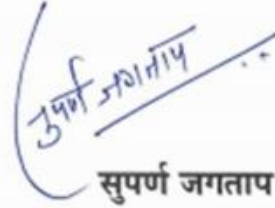 सुपर्ण जगताप
सुपर्ण जगताप